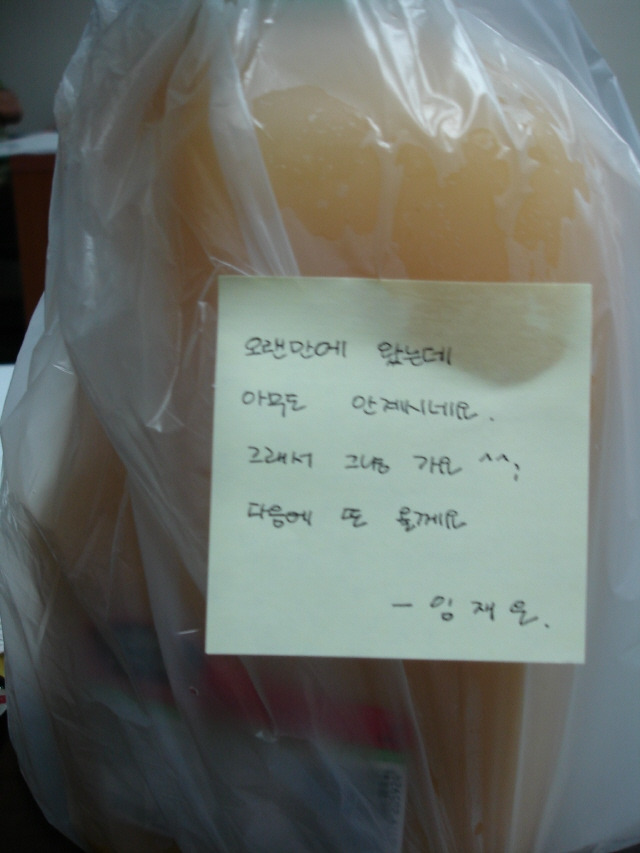 오랜만에 왔는데
아무도 안계시네요.
그래서 그냥 가요 ^^;
다음에 또 올게요
- 임재은.